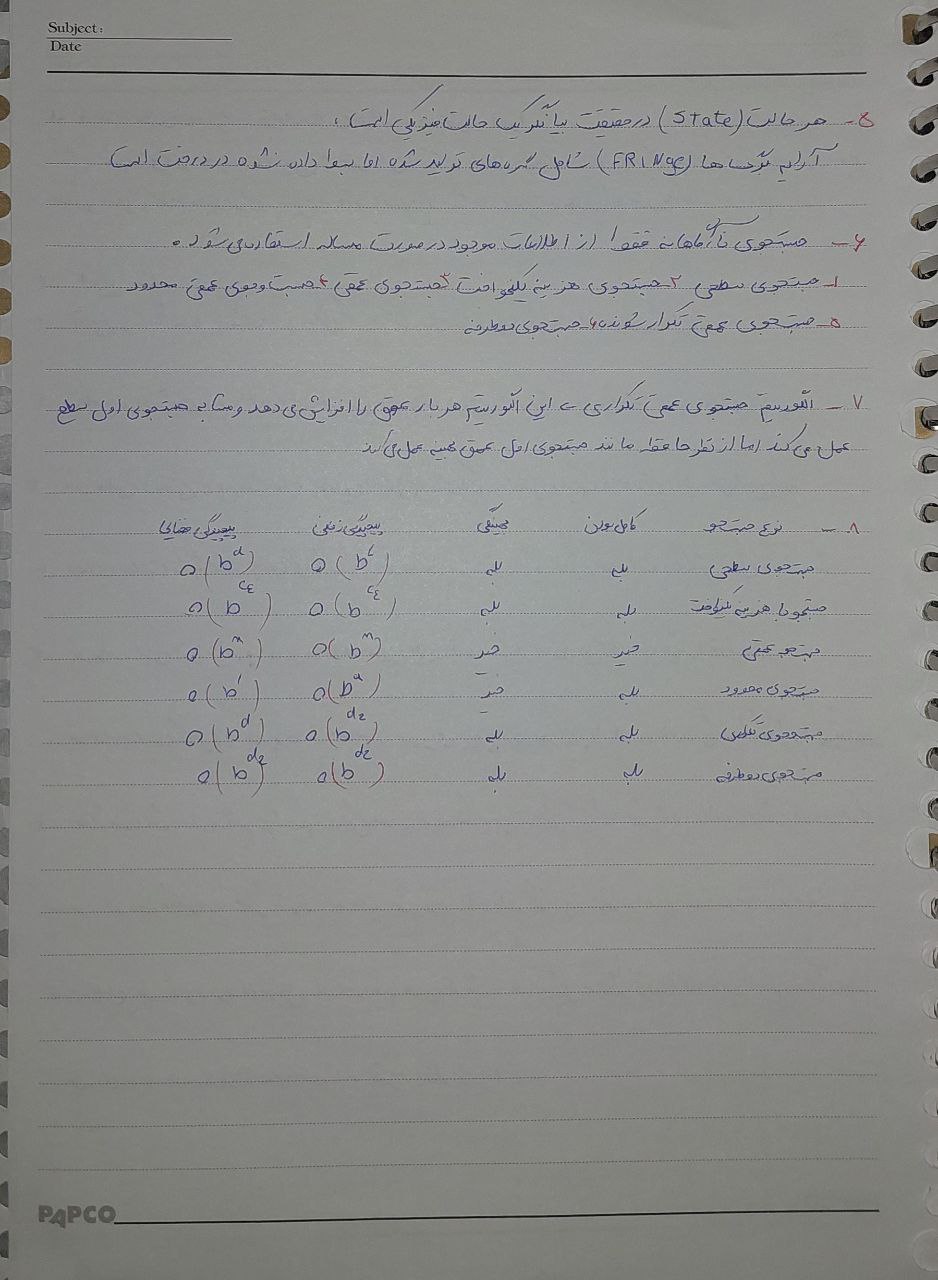 Subject:
Date
۵- هر حالت (State) در حقیقت بیانگر یک حالت فیزیکی است.
آرایه گره ها (FRINge) شامل گره های تولید شده اما بسط داده نشده در درخت است
۶- جستجوی ناآگاهانه فقط از اطلاعات موجود در صورت مساله استفاده می شود.
۱- جستجوی سطحی ۲- جستجوی هزینه یکنواخت ۳- جستجوی عمقی ۴- جست وجوی عمقی محدود
۵- جستجوی عمقی تکرار شونده ۶- جستجوی دو طرفه
۷- الگوریتم جستجوی عمقی تکراری ← این الگوریتم هر بار عمق را افزایش می دهد و مشابه جستجوی اول سطح
عمل می کند اما از نظر حافظه مانند جستجوی اول عمق بهینه عمل می کند
۸- نوع جستجو کامل بودن بهینگی پیچیدگی زمانی پیچیدگی فضایی
جستجوی سطحی بله بله O(b) O(b^d)
جستجو با هزینه یکنواخت بله بله O(b) O(b)
جستجو عمقی خیر خیر O(b^m) O(b^m)
جستجوی محدود بله خیر O(b) O(b^l)
جستجوی بله بله O(b^d2) O(b^d)
جستجوی دو طرفه بله بله O(b^d2) O(b^d2)
PAPCO